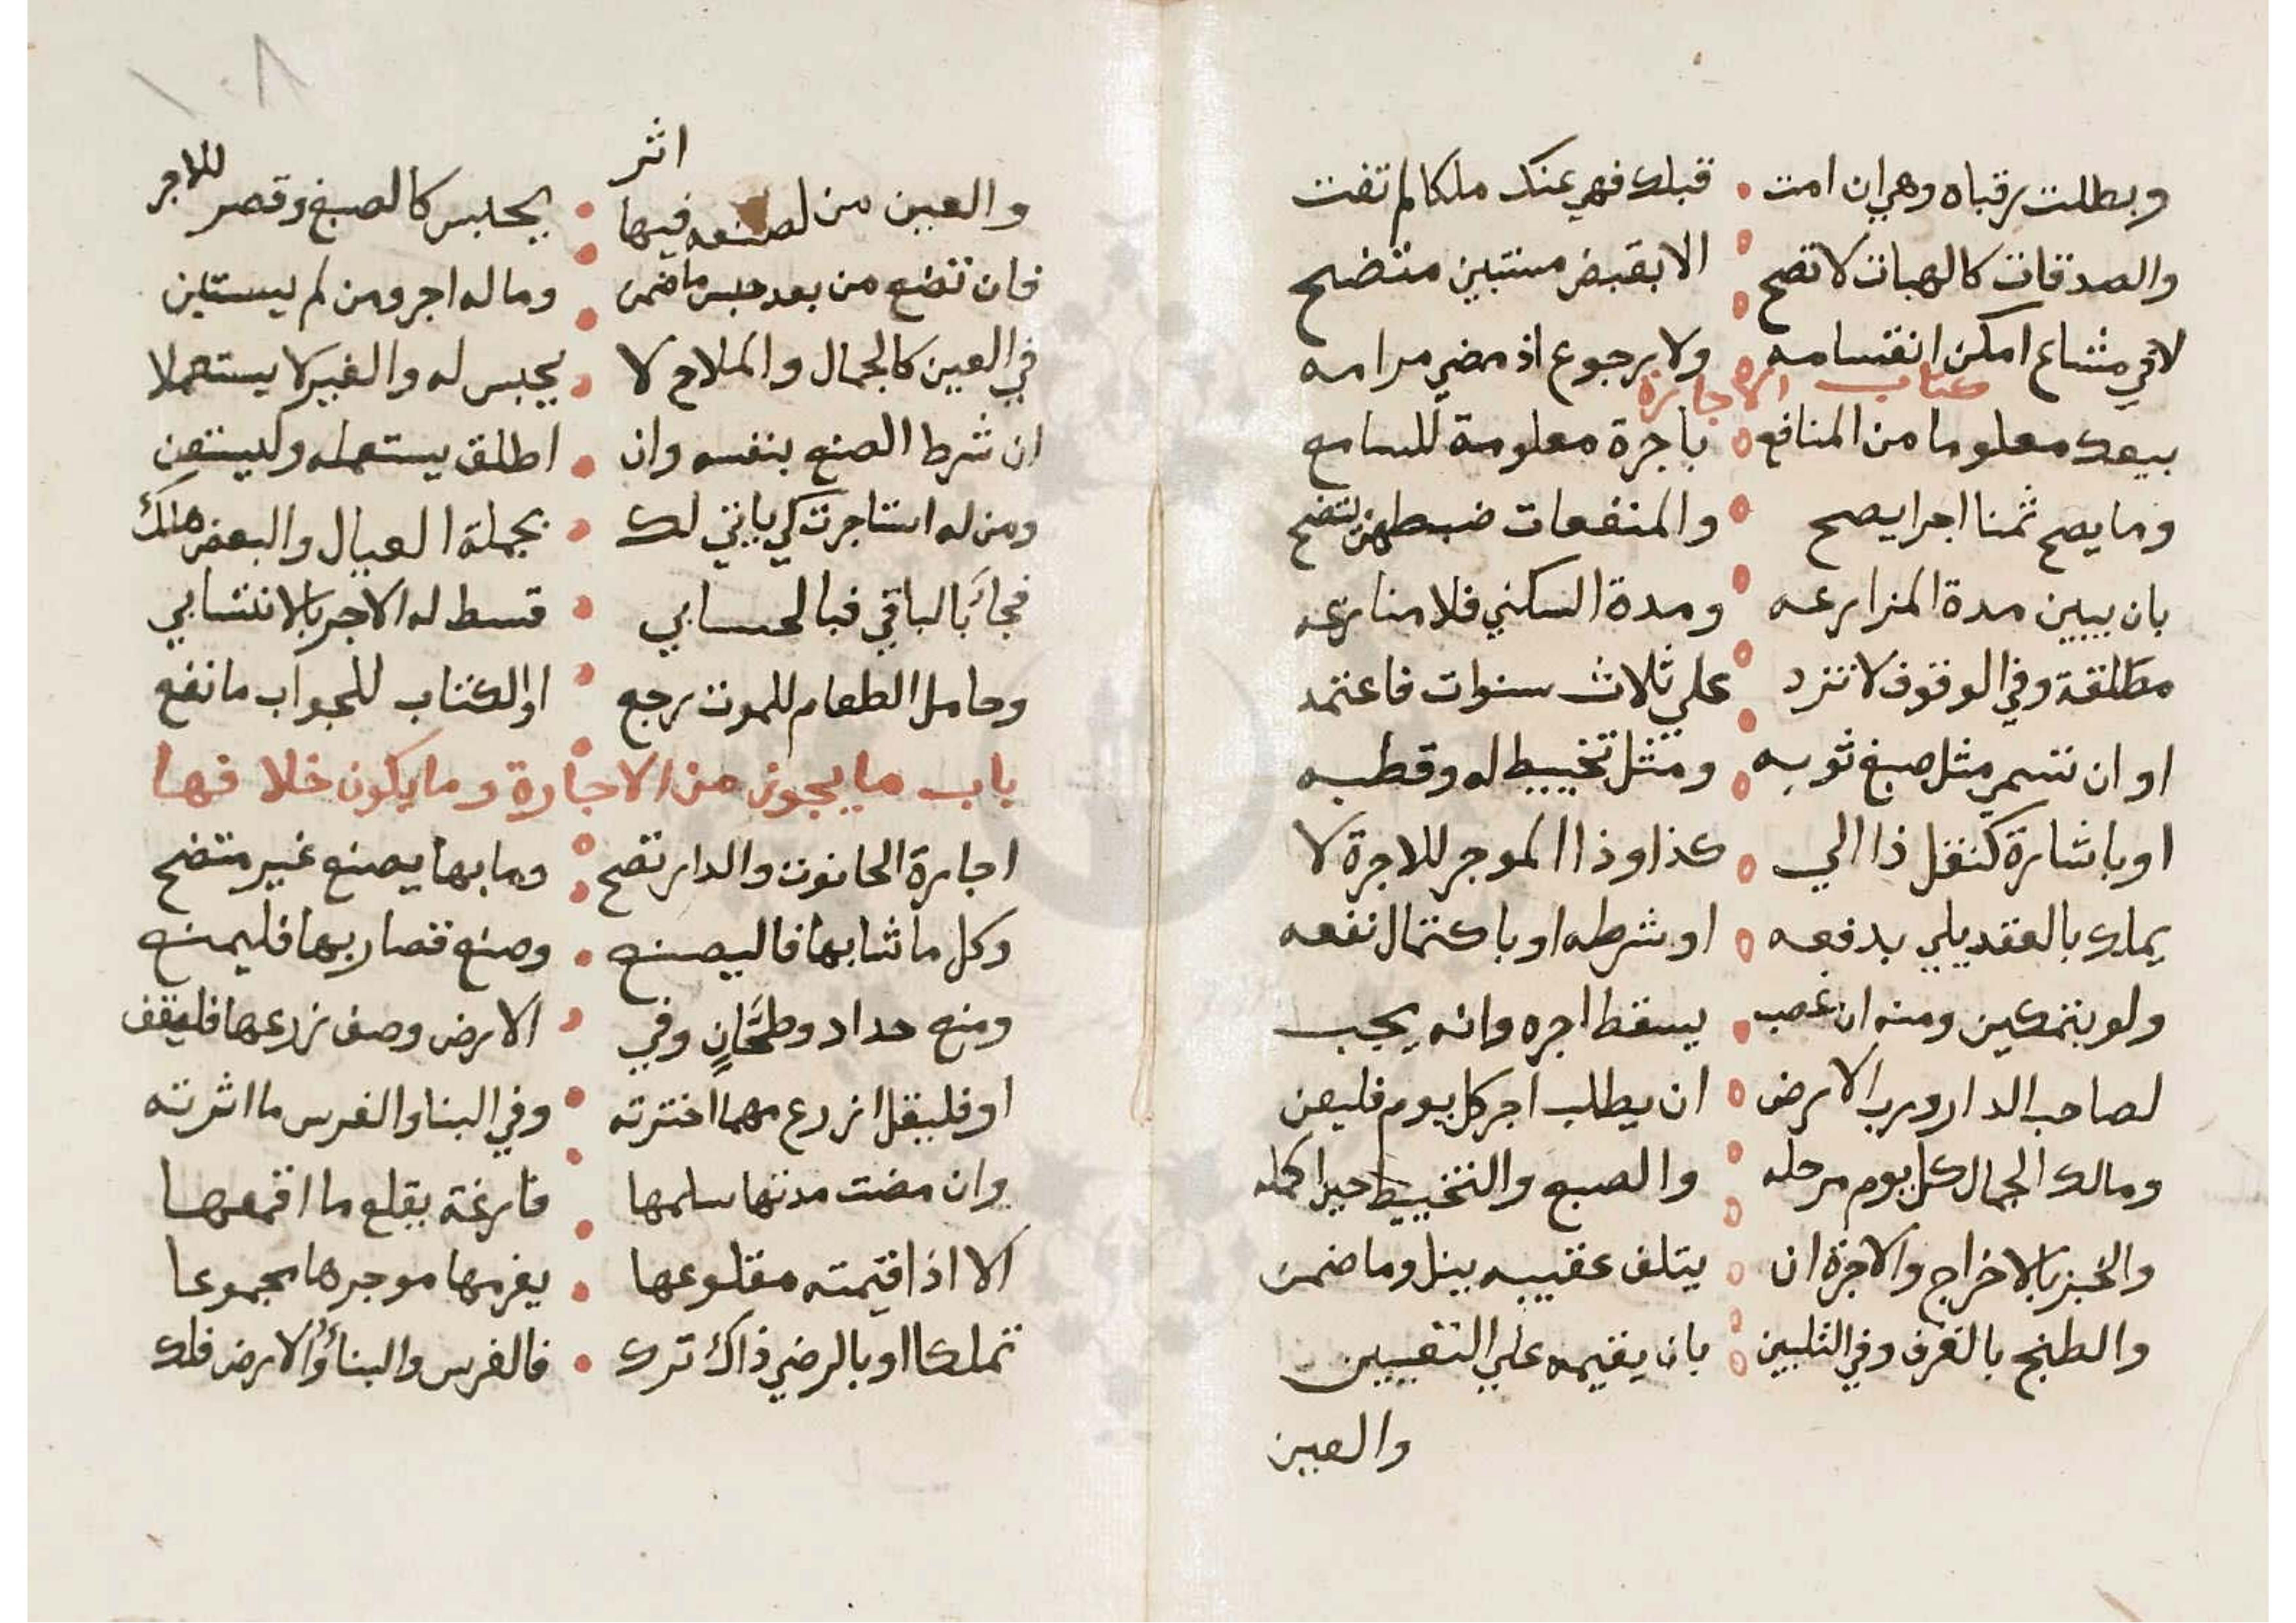 وبطلت رقباه وهي ان امت قبلك فهي عندك ملكا لم تفت
والصدقات كالهبات لا تصح الا بقبض مستبين متضح
لا في مشاع امكن انقسامه ولا رجوع اذ مضي مرامه
كتاب الاجارة
بيعك معلوما من المنافع باجرة معلومة للسامع
وما يصح ثمنا اجرا يصح والمنفعات ضبطهن تتضح
بان يبين مدة المزارعه ومدة السكني فلا منازعه
مطلقة وفي الوقوف لا تزد علي ثلاث سنوات فاعتمد
او ان تسمي مثل صبغ ثوبه ومثل تخييط له وقطبه
او باشارة كنقل ذا الي كذا وذا الموجر للاجرة لا
يملك بالعقد يلي بدفعه او شرطه او باكتمال نفعه
ولو بتمكين ومنه ان غصب يسقط اجره وانه يجب
لصاحب الدار ورب الارض ان يطلب اجر كل يوم فليعن
ومالك الجمال كل يوم مرحله والصبع والتخييط حيرا كمله
والخبز بالاخراج والاجرة ان يتلف عقيبه ينل وما ضمن
والطبخ بالغرف وفي التلبين بان يقيمه علي التقيين
والعين
والعين من لصنعه فيها اثر يحلبس كالصبغ وقصر للاجر
فان تضع من بعد حبس ما ضمن وما له اجر ومن لم يستلين
في العين كالجمال والملاح لا يحبس له والغير لا يستعملا
ان شرط الصنع بنفسه وان اطلق يستعمله وليستعن
ومن له استاجرت كي ياتي لك بجملة العيال والبعض هلك
فجاء بالباقي فبالحسابي قسط له الاجر بالانتسابي
وحامل الطعام للموت رجع او الكتاب للجواب ما نفع
باب ما يجوز من الاجارة وما يكون خلافها
اجارة الحانوت والدار تصح وما بها يصنع غير متضح
وكل ما شا بها فاليصنع وصنع قصار بها فليمنع
ومنع حداد وطحان وفي الارض وصف زرعها فليقف
او فليقل ازرع مهما اخترته وفي البنا والغرس ما اثرته
وان مضت مدتها سلمها فارغة بقلع ما اقمعها
الا اذا قيمته مقلوعها يغرمها موجرها مجموعا
تملكا او بالرضي ذاك ترك فالغرس والبناء والارض فلك